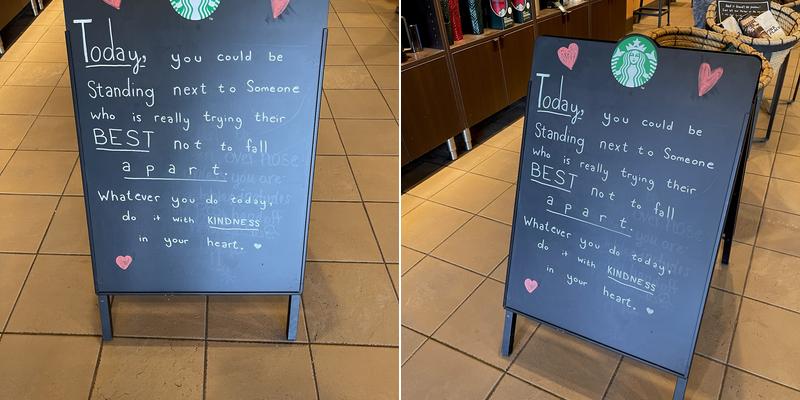 Today, you could be
Standing next to Someone
who is really trying their
BEST not to fall
apart.
Whatever you do today,
do it with KINDNESS
in your heart.
Today, you could be
Standing next to Someone
who is really trying their
BEST not to fall
apart.
Whatever you do today,
do it with KINDNESS
in your heart.